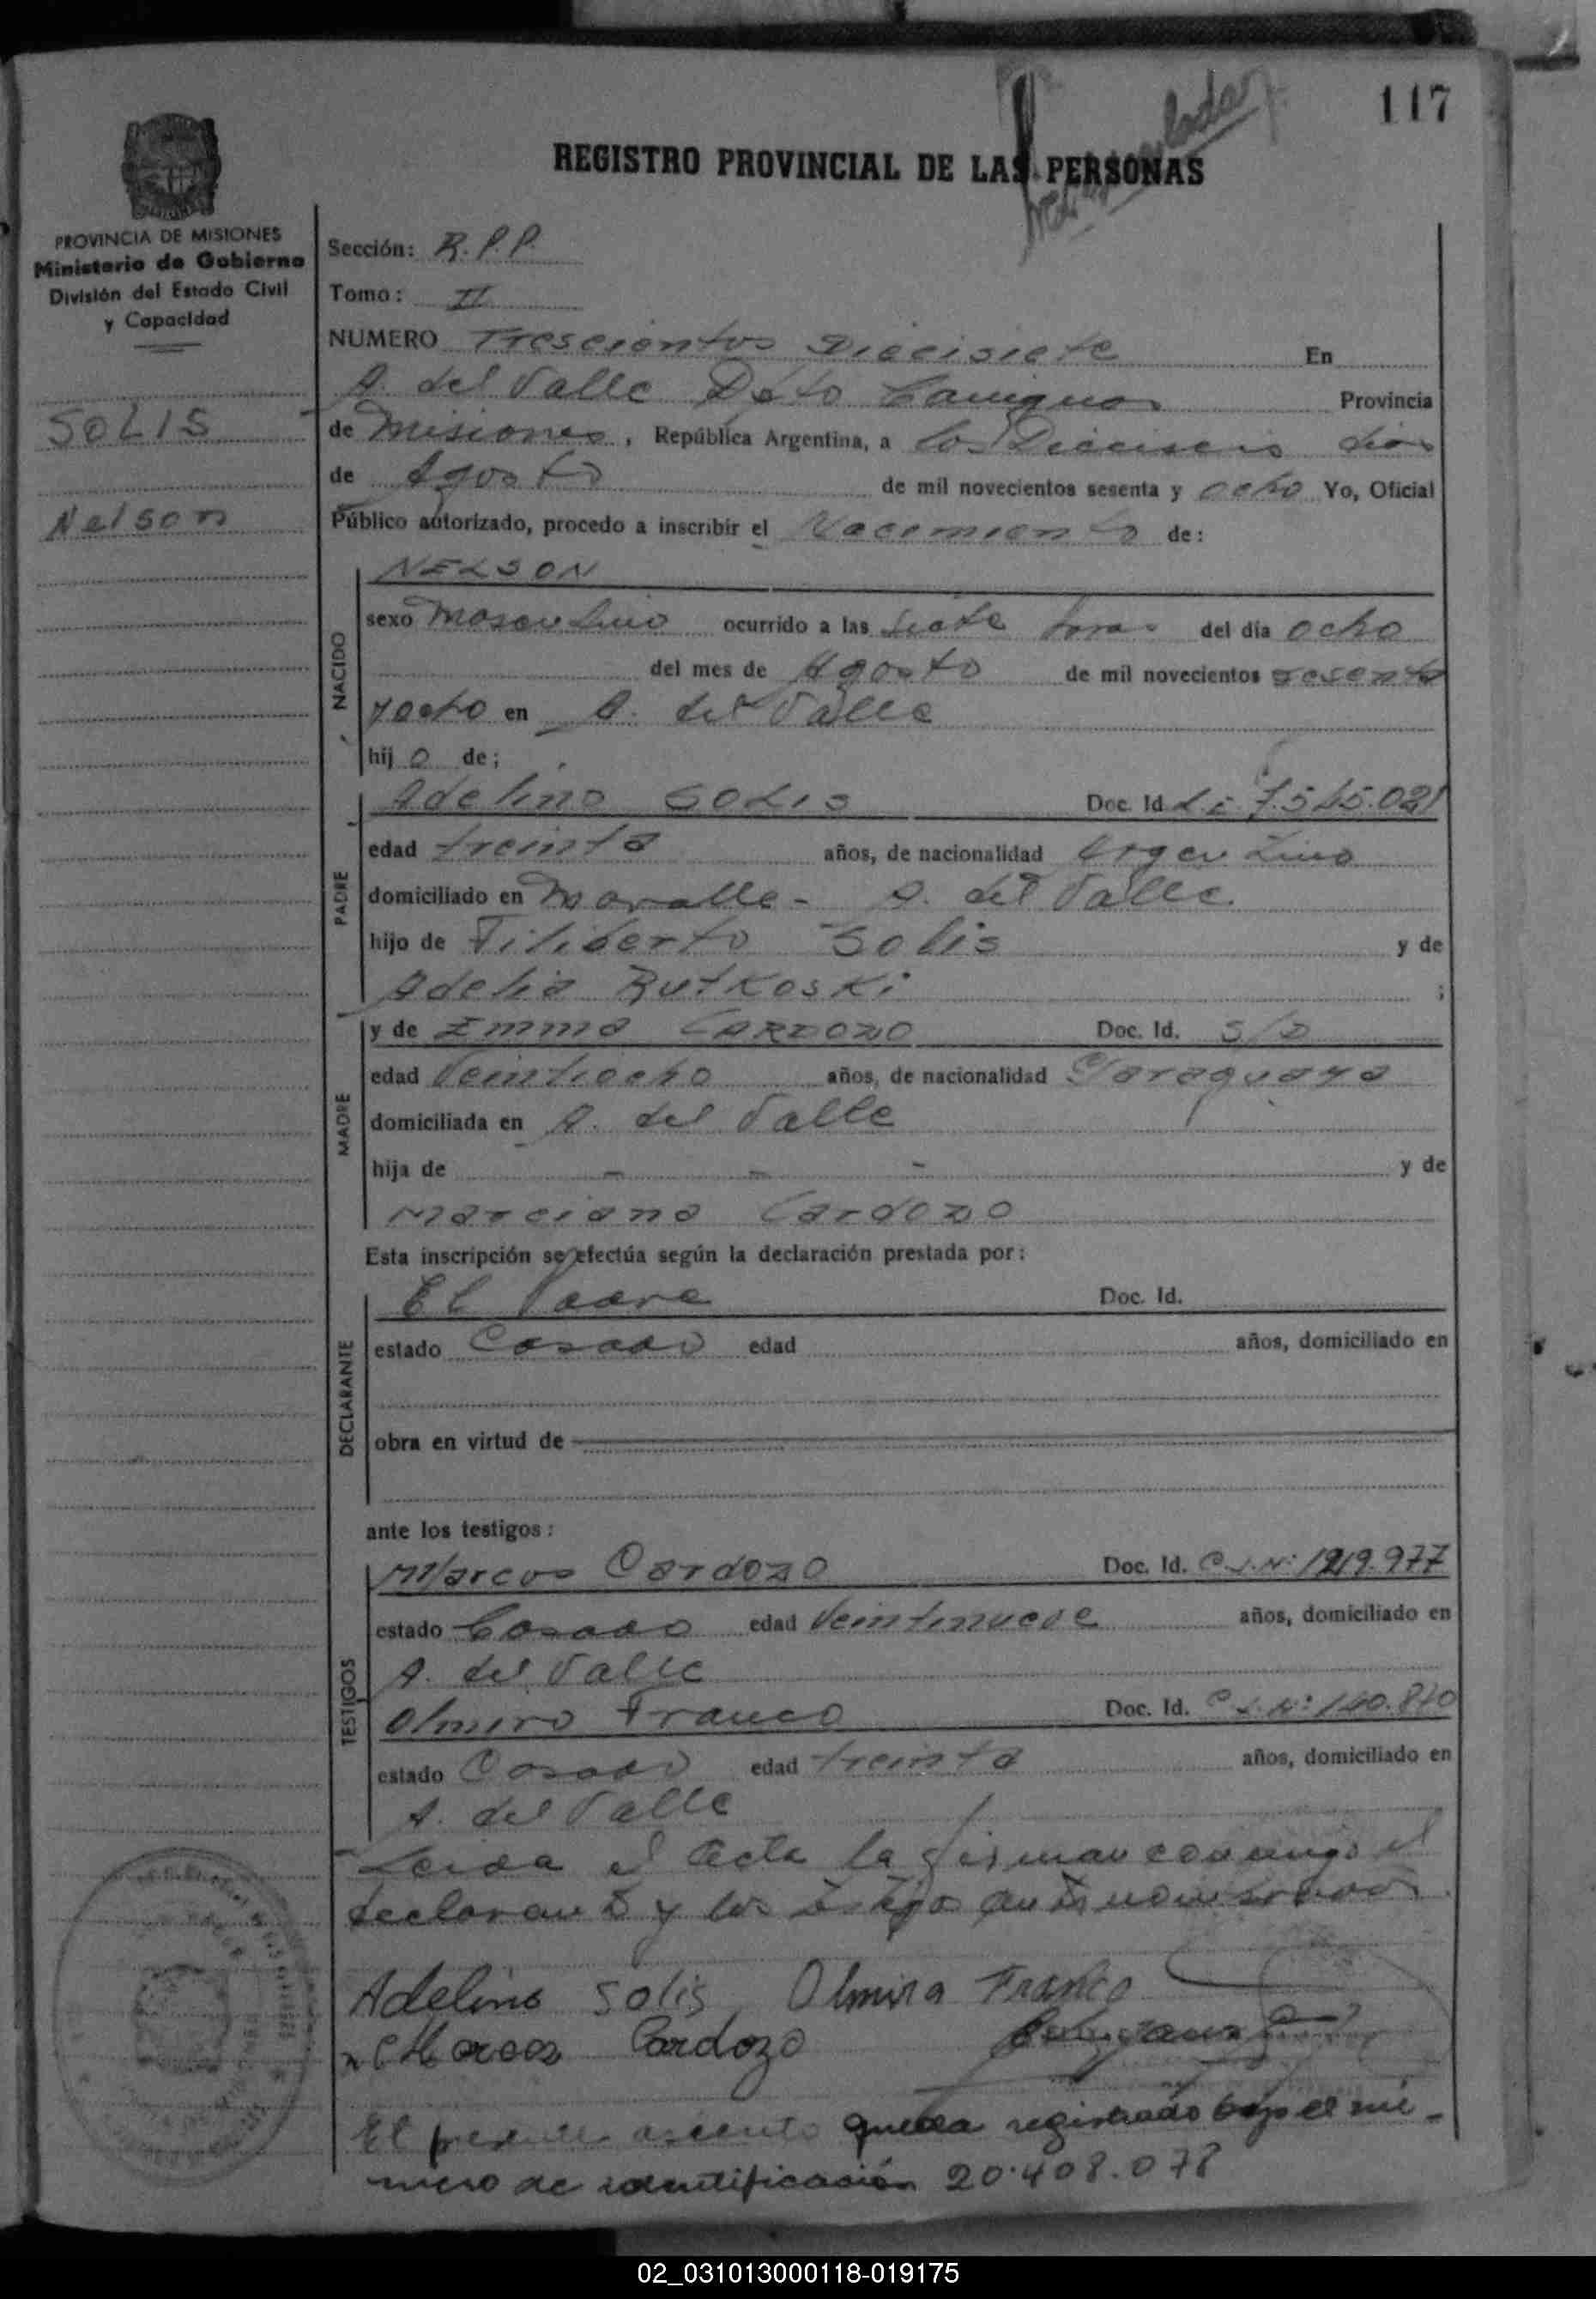 117
REGISTRO PROVINCIAL DE LAS PERSONAS
PROVINCIA DE MISIONES
Ministerio de Gobierno
División del Estado Civil
y Capacidad
SOLIS
Nelson
Sección: R.P.P.
Tomo: II
NUMERO Trescientos Diecisiete En
A. del Valle Dpto Cainguas Provincia
de Misiones, República Argentina, a los Dieciseis dias
de Agosto de mil novecientos sesenta y ocho Yo, Oficial
Público autorizado, procedo a inscribir el Nacimiento de:
NACIDO
NELSON
sexo Masculino ocurrido a las siete horas del día ocho
del mes de Agosto de mil novecientos sesenta
y ocho en A. del Valle
hijo de;
PADRE
Adelino SOLIS Doc. Id L.E. 7.545.021
edad treinta años, de nacionalidad Argentino
domiciliado en A. del Valle
hijo de Filiberto Solis y de
Adelia Rutkoski ;
MADRE
y de Emma CARDOZO Doc. Id. S/D
edad Veintiocho años, de nacionalidad Paraguaya
domiciliada en A. del Valle
hija de - - - y de
Marciana Cardozo
Esta inscripción se efectúa según la declaración prestada por:
DECLARANTE
El Padre Doc. Id.
estado Casado edad años, domiciliado en
obra en virtud de
ante los testigos:
TESTIGOS
Marcos Cardozo Doc. Id. C.I.Nº 1219.977
estado Casado edad Veintinueve años, domiciliado en
A. del Valle
Olmiro Franco Doc. Id. C.I.Nº 140.840
estado Casado edad treinta años, domiciliado en
A. del Valle
Leida el Acta la firman conmigo el
declarante y los testigos
Adelino Solis Olmiro Franco
Marcos Cardozo
El presente asiento queda registrado bajo el nú-
mero de identificación 20.408.078
02_031013000118-019175